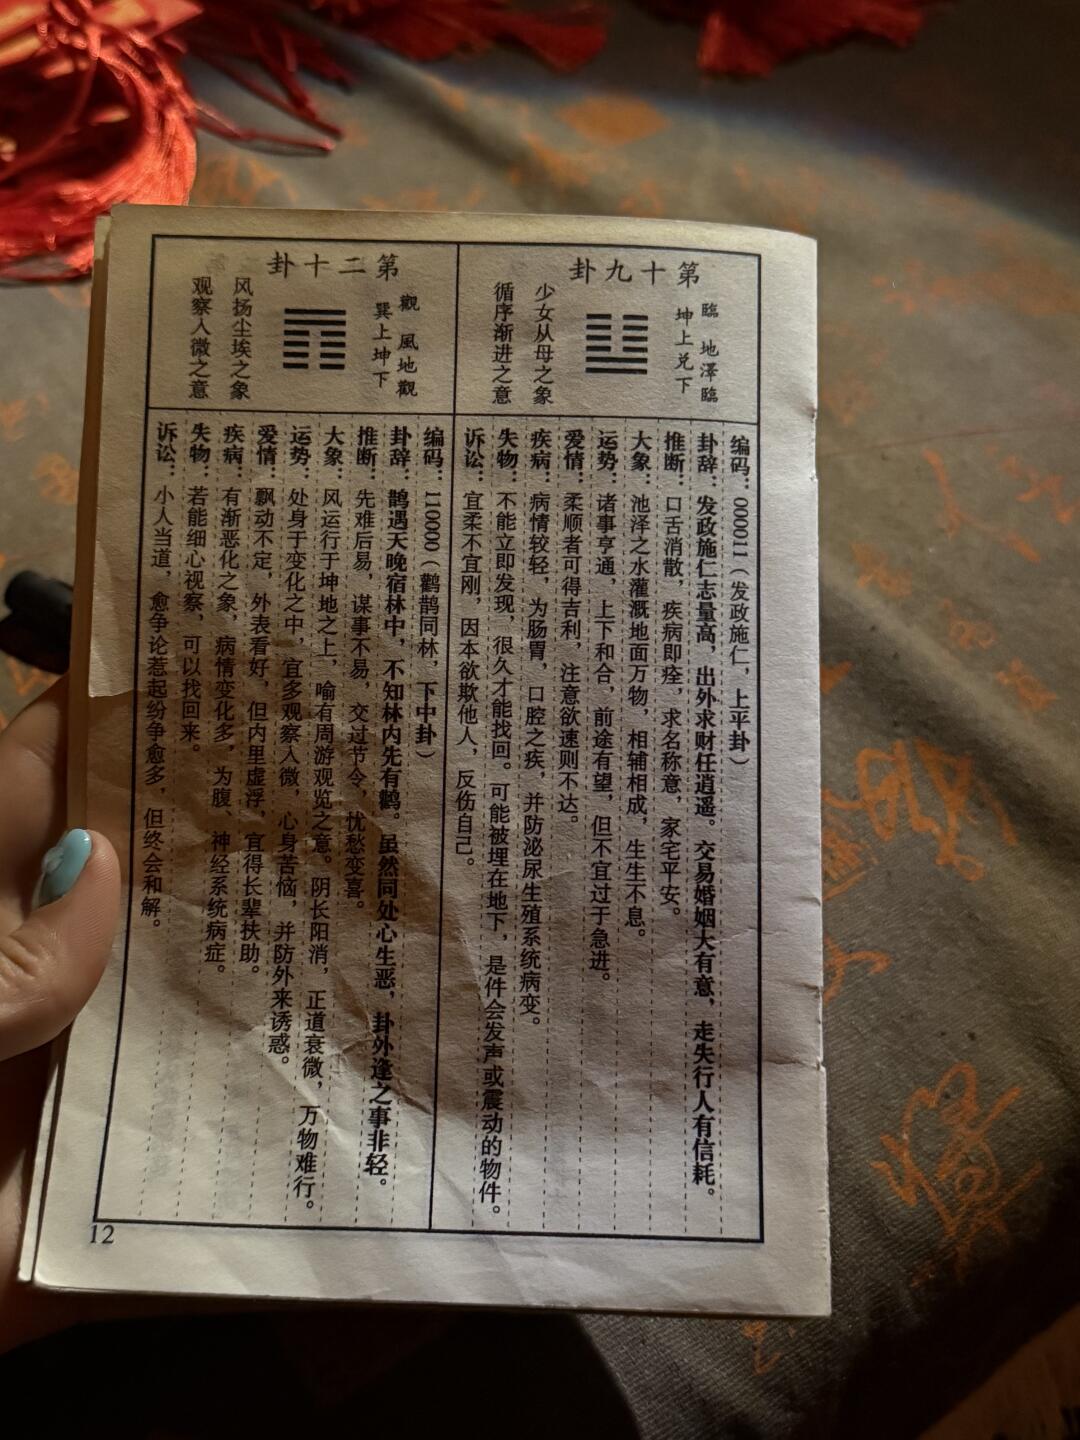 第十九卦
臨 地澤臨
坤上兑下
少女从母之象
循序渐进之意
编码：000011（发政施仁，上平卦）
卦辞：发政施仁志量高，出外求财任逍遥。交易婚姻大有意，走失行人有信耗。
推断：口舌消散，疾病即痊，求名称意，家宅平安。
大象：池泽之水灌溉地面万物，相辅相成，生生不息。
运势：诸事亨通，上下和合，前途有望，但不宜过于急进。
爱情：柔顺者可得吉利，注意欲速则不达。
疾病：病情较轻，为肠胃，口腔之疾，并防泌尿生殖系统病变。
失物：不能立即发现，很久才能找回。可能被埋在地下，是件会发声或震动的物件。
诉讼：宜柔不宜刚，因本欲欺他人，反伤自己。
第二十卦
觀 風地觀
巽上坤下
风扬尘埃之象
观察入微之意
编码：110000（鹳鹊同林，下中卦）
卦辞：鹊遇天晚宿林中，不知林内先有鹳。虽然同处心生恶，卦外逢之事非轻。
推断：先难后易，谋事不易，交过节令，忧愁变喜。
大象：风运行于坤地之上，喻有周游观览之意。阴长阳消，正道衰微，万物难行。
运势：处身于变化之中，宜多观察入微，心身苦恼，并防外来诱惑。
爱情：飘动不定，外表看好，但内里虚浮，宜得长辈扶助。
疾病：有渐恶化之象，病情变化多，为腹、神经系统病症。
失物：若能细心视察，可以找回来。
诉讼：小人当道，愈争论惹起纷争愈多，但终会和解。
12